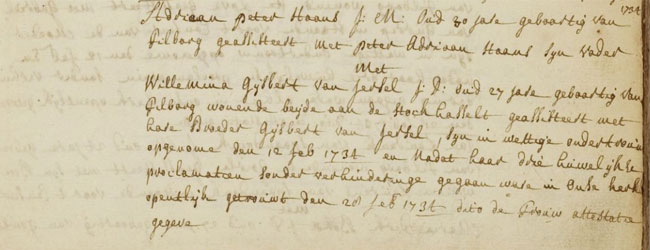 1734
Adriaan Peter Haans J: M: Oud 30 jare geboortig van
Tilborg geassisteert met Peter Adriaan Haans syn Vader
Met
Willemina Gysbert van Iersel J: D: oud 27 jare geboortig van
Tilborg wonende beyde aan de Stockhasselt geassisteert met
hare Broeder Gysbert van Iersel, syn in wettige ondertrouw
opgenome den 12 feb 1734 en Nadat haar drie huwelijkse
proclamatien sonder verhinderinge gegaan ware in Onse kerk
opentlijk getrouwt den 28 feb 1734 dito de Trouw attestatie
gegeve